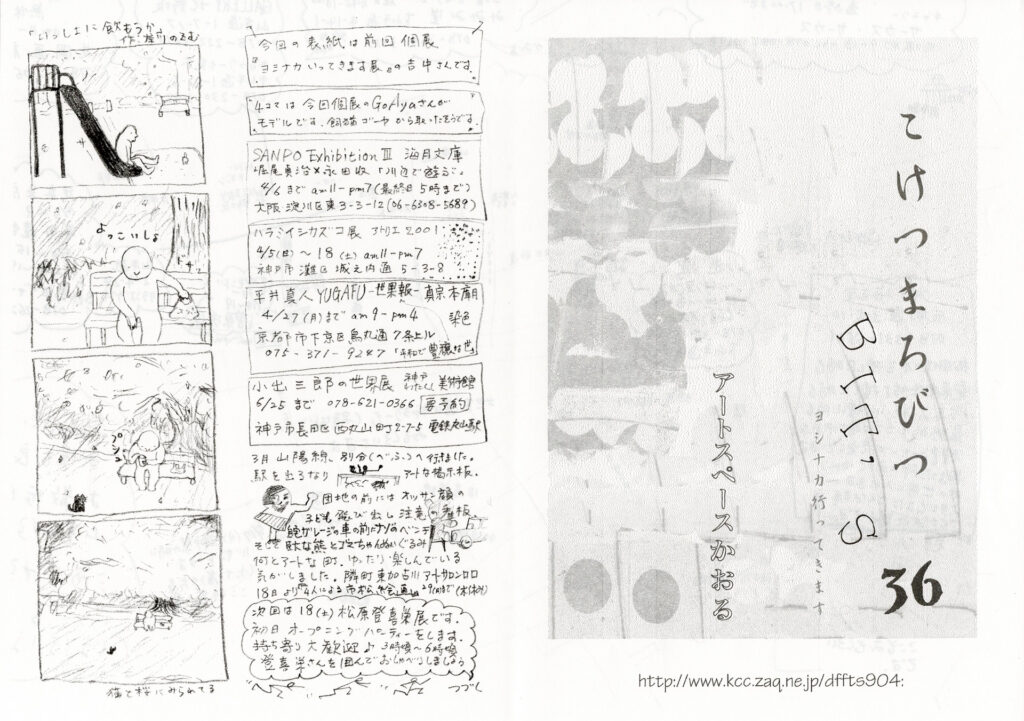 いっしょに飲もうか
よっこいしょ
プシュ
猫と桜にみられてる
今回の表紙は前回個展
『ヨシナカいってきます展』の吉中さんです。
4コマは今回個展のGoAyaさんが
モデルです。飼猫ゴーヤから取ったそうです。
SANPO Exhibition III 海月文庫
堀尾貞治×永田収「川辺で遊ぶ」
4/6まで am11-pm7(最終日5時まで)
大阪淀川区東3-3-12(06-6308-5689)
ハラミイシカズコ展 アトリエ2001
4/5(日)〜18(土) am11-pm7
神戸市灘区城之内通5-3-8
平井真人YUGAFU-世果報-真宗本廟
4/27(月)まで am9-pm4 染色
京都市下京区烏丸通7条上ル
075-371-9247「平和で豊穣な世」
小出三郎の世界展 神戸わたくし美術館
6/25まで 078-621-0366 要予約
神戸市長田区西丸山町2-7-5 電鉄丸山駅
3月山陽線、別府(べふ)へ行きました。
駅を出るなり アートな掲示板。
団地の前にはオッサン顔の
子ども飛び出し注意の看板。
何とアートな町、ゆったり楽しんでいる
気がしました。隣町東加古川アートサロンロロ
次回は18(土)松原登喜栄展です。
初日オープニングパーティーをします。
持ち寄り大歓迎♪ 3時頃〜6時頃
登喜栄さんを囲んでおしゃべりしましょう
つづく
こけつまろびつ
BIT'S
36
ヨシナカ行ってきます
アートスペースかおる
http://www.kcc.zaq.ne.jp/dffts904: